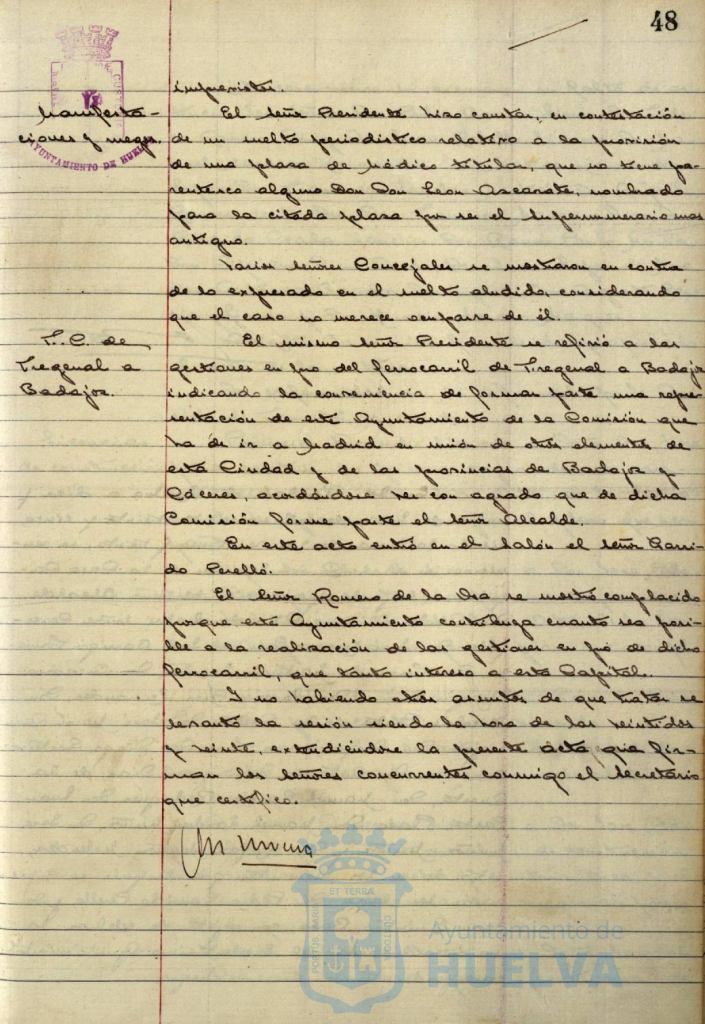 48
imprevistos.
Manifesta-
ciones y ruegos.
AYUNTAMIENTO DE HUELVA
El Señor Presidente hizo constar, en contestación
de un suelto periodístico relativo a la provisión
de una plaza de Médico titular, que no tiene pa-
rentesco alguno Don Don Leon Azcarate, nombrado
para la citada plaza por ser el Supernumerario mas
antiguo.
Varios Señores Concejales se mostraron en contra
de lo expresado en el suelto aludido, considerando
que el caso no merece ocuparse de él.
F.C. de
Fregenal a
Badajoz.
El mismo Señor Presidente se refirió a las
gestiones en pro del ferrocarril de Fregenal a Badajoz
indicando la conveniencia de formar parte una repre-
sentación de este Ayuntamiento de la Comisión que
ha de ir a Madrid en unión de otros elementos de
esta Ciudad y de las provincias de Badajoz y
Cáceres, acordándose ver con agrado que de dicha
Comisión forme parte el Señor Alcalde.
En este acto entró en el Salón el Señor Garri-
do Perelló.
El Señor Romero de la Osa se mostró complacido
porque este Ayuntamiento contribuya cuanto sea posi-
ble a la realización de las gestiones en pró de dicho
ferrocarril, que tanto interesa a esta Capital.
Y no habiendo otros asuntos de que tratar se
levantó la sesión siendo la hora de las veintidos
y veinte, extendiéndose la presente acta que fir-
man los Señores concurrentes conmigo el Secretario
que certifico.
ET TERRA
PORTUS MARIS
CUSTODIA
Ayuntamiento de
HUELVA